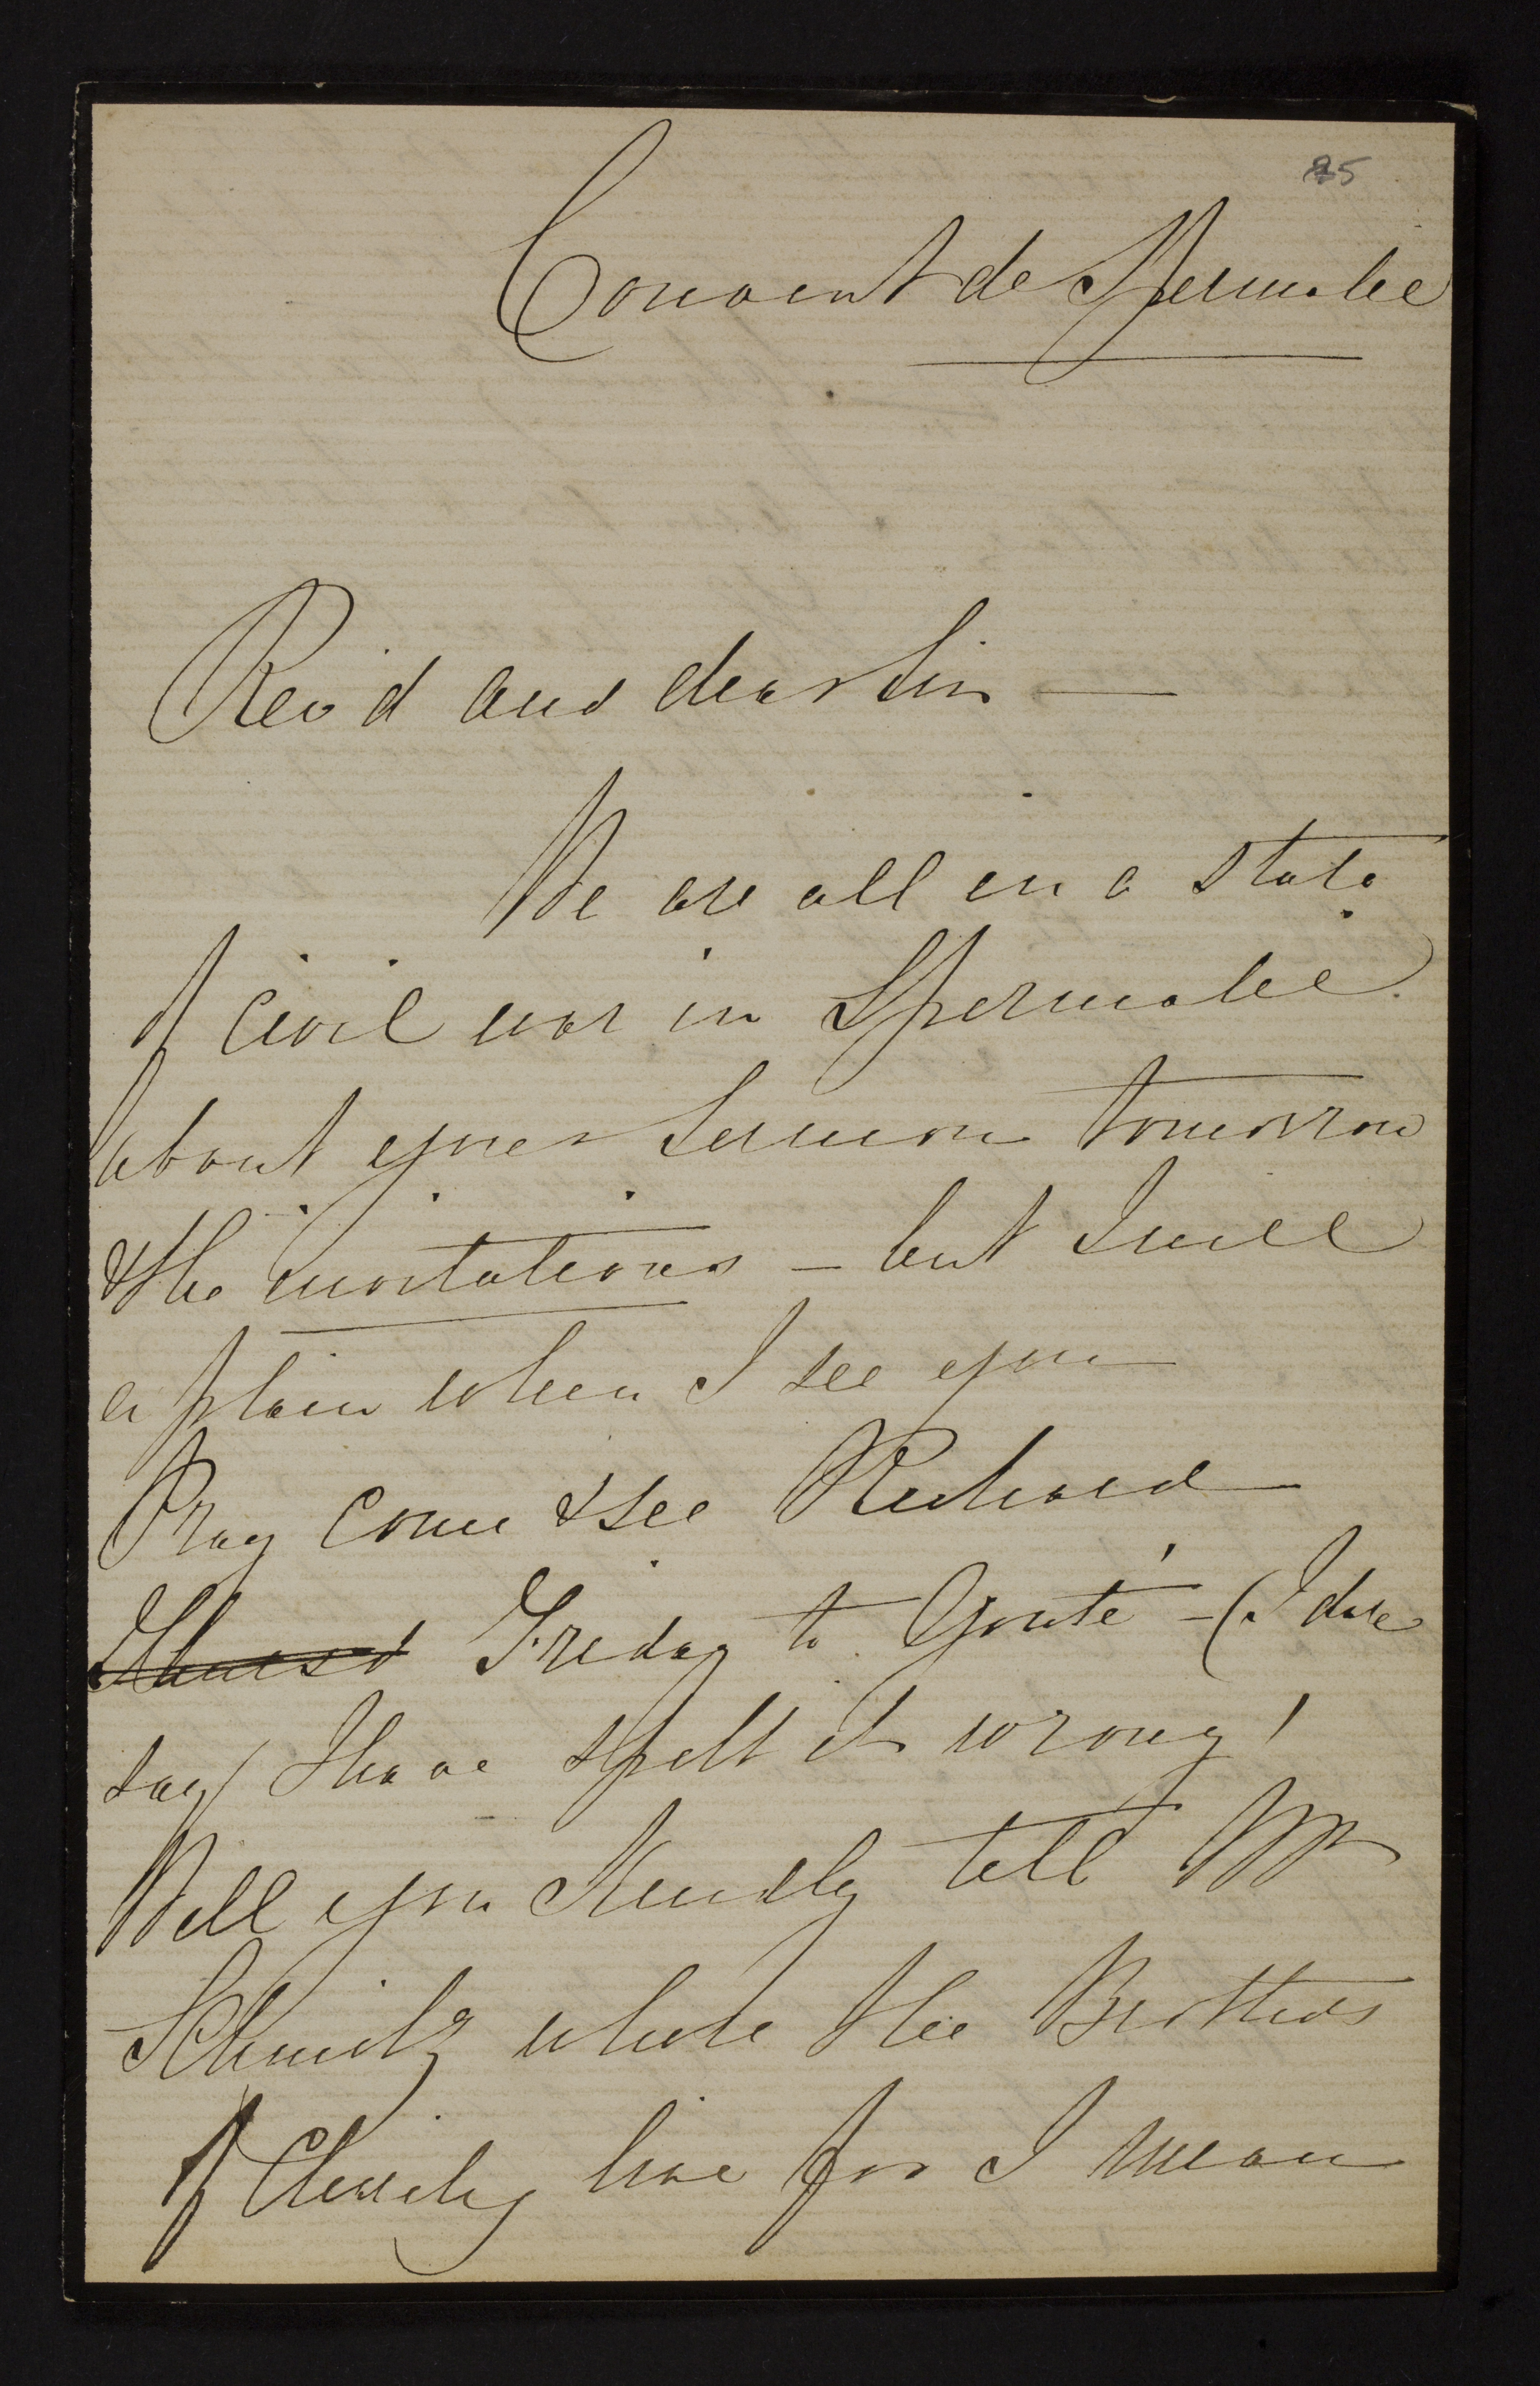 25
Couvent de Spermalie
Rev'd and dear Sir —
We are all in a state
of civil war in Spermalie
about your Sermon tomorrow
& the invitations — but I will
explain when I see you
Pray come & see Richard
Thursd Friday to Gouté — (I dare
say I have spelt it wrong!
Will you kindly tell Mr
Schmitz where the Brothers
of Charity live for I mean